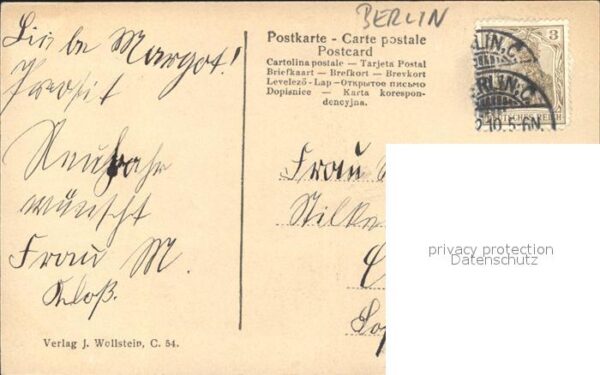 Liebe Margot!
Prosit
Neujahr
wünscht
Frau M.
Kloß.
Verlag J. Wollstein, C. 54.
BERLIN
Postkarte - Carte postale
Postcard
Cartolina postale — Tarjeta Postal
Briefkaart — Brefkort — Brevkort
Levelező-Lap — Открытое письмо
Dopisnice — Karta korespon-
dencyjna.
3
BERLIN.C.
DEUTSCHES REICH
Frau
privacy protection
Datenschutz